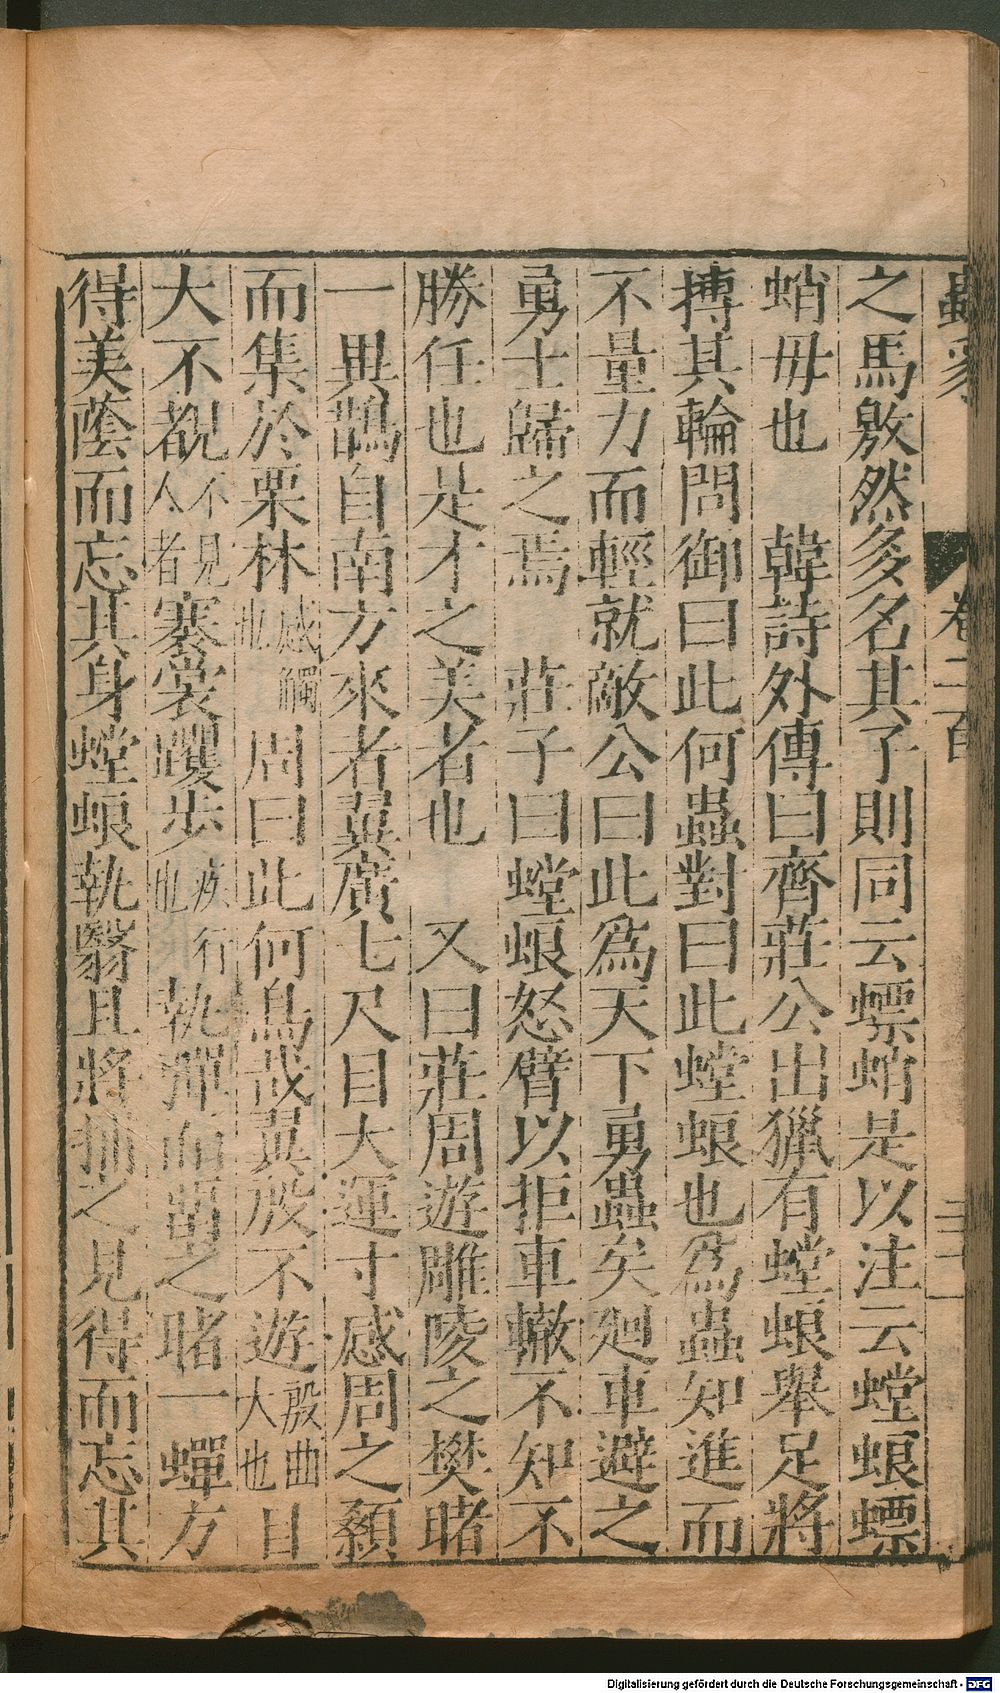 之馬敫然多名其了則同云螵蛸是以注云螳蜋螵
蛸毋也　韓詩外傳曰齊莊公出獵有螳蜋舉足將
搏其輪問御曰此何蟲對曰此螳蜋也爲蟲知進而
不量力而輕就敵公曰此爲天下勇蟲矣廻車避之
勇士歸之焉　莊子曰螳蜋怒臂以拒車轍不知不
勝任也是才之美者也　又曰莊周遊雕陵之樊睹
一異鵲自南方來者翼廣七尺目大運寸感周之顙
而集於栗林感觸也周曰此何鳥哉翼殷不遊殷曲大也目
大不覩不見人者褰裳躩步疾行也執彈而留之睹一蟬方
得美蔭而忘其身螳蜋執翳且將捕之見得而忘其
卷二百
Digitalisierung gefördert durch die Deutsche Forschungsgemeinschaft - DFG